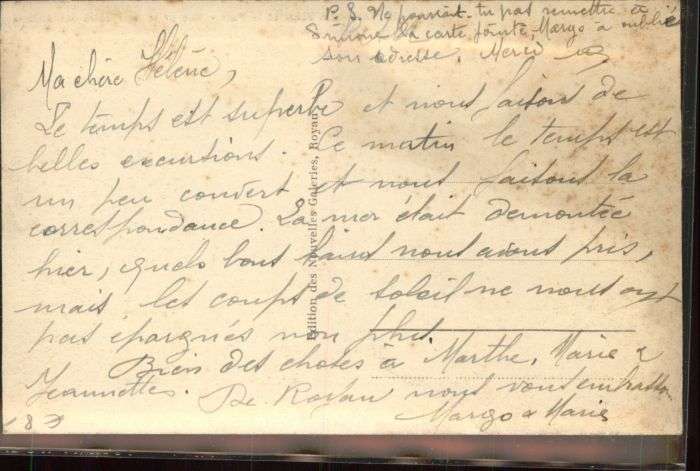 P. S. Ne pourrait-tu pas remettre à
la carte jointe, Margo a oublié
son adresse, Merci
Ma chère Hélène,
Le temps est superbe et nous faisons de
belles excursions. Ce matin le temps est
un peu couvert et nous faisons la
correspondance. La mer était démontée
hier, quels bons bains nous avons pris,
mais les coups de soleil ne nous ont
pas épargnés non plus.
Bien des choses à Marthe, Marie &
Jeannettes. De Royan nous vous embrassons
Margo & Marie
Edition des Nouvelles Galeries, Royan